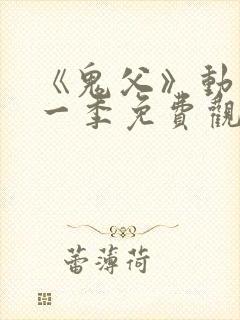 《鬼父》動
一季免費觀
蕾薄荷